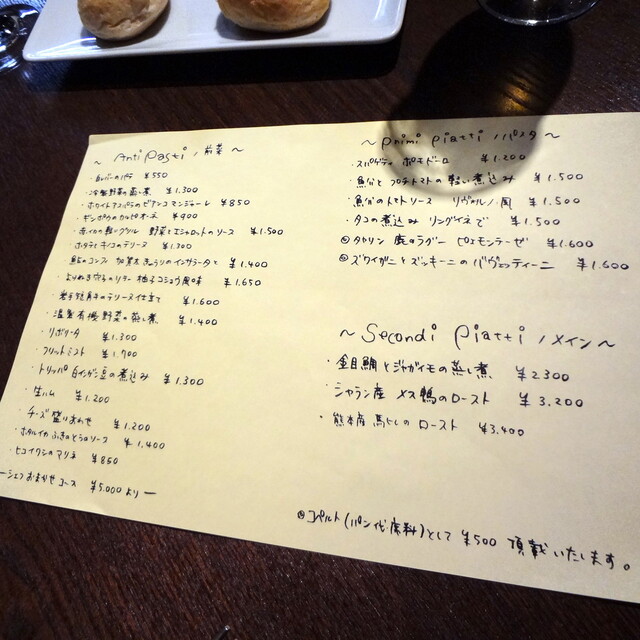 ～ Anti Pasti / 前菜 ～
・白レバーのパテ ¥550
・冷製野菜の蒸し煮 ¥1.300
・ホワイトアスパラのビアンコマンジャーレ ¥850
・ギンポウのカルピオーネ ¥900
・赤イカの軽いグリル 野菜とエシャロットのソース ¥1.500
・ホタテとキノコのテリーヌ ¥1.300
・鮎のコンフィ 加賀太きゅうりのインサラータと ¥1.400
柚子コショウ風味 ¥1.650
・岩手短角牛のテリーヌ仕立て ¥1.600
・温製有機野菜の蒸し煮 ¥1.400
・リボリータ ¥1.300
・フリットミスト ¥1.700
・トリッパ白インゲン豆の煮込み ¥1.300
・生ハム ¥1.200
・チーズ盛りあわせ ¥1.200
・ホタルイカ ふきのとうのソース ¥1.400
・ヒコイワシのマリネ ¥850
ーシェフおまかせコース ¥5.000よりー
～ Primi Piatti / パスタ ～
・スパゲティ ポモドーロ ¥1.200
・魚介とプチトマトの軽い煮込み ¥1.500
・魚介のトマトソース リヴォルノ風 ¥1.500
・タコの煮込み リングイネで ¥1.500
◎タヤリン 鹿のラグー ピエモンテーゼ ¥1.600
◎ズワイガニとズッキーニのバヴェッティーニ ¥1.600
～ Secondi Piatti / メイン ～
・金目鯛とジャガイモの蒸し煮 ¥2300
・シャラン産 メス鴨のロースト ¥3.200
・熊本産 馬ヒレの ロースト ¥3.400
◎コペルト(パン代席料)として ¥500 頂戴いたします。